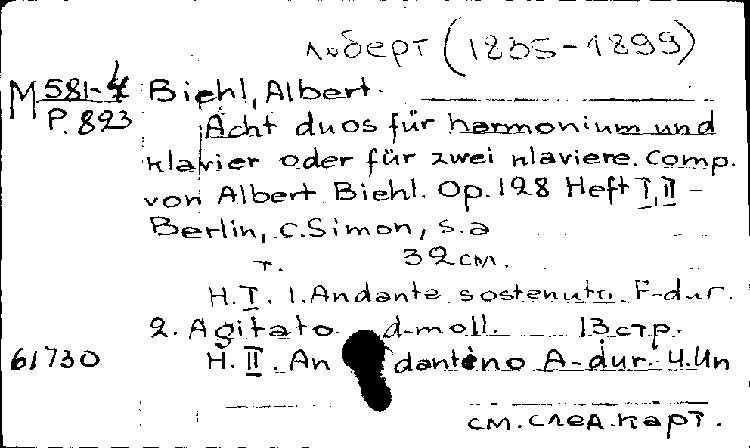 люберт (1835-1899)
М 581-4 Biehl, Albert.
Р. 893 Acht duos für harmonium und
klavier oder für zwei klaviere. Comp.
von Albert Biehl. Op. 128 Heft I, II -
Berlin, C. Simon, s.a
т. 32 см.
H. I. 1. Andante sostenuto. F-dur.
2. Agitato d-moll. 13 стр.
61730 H. II. An dantino A-dur. 4. Un
см. след. карт.